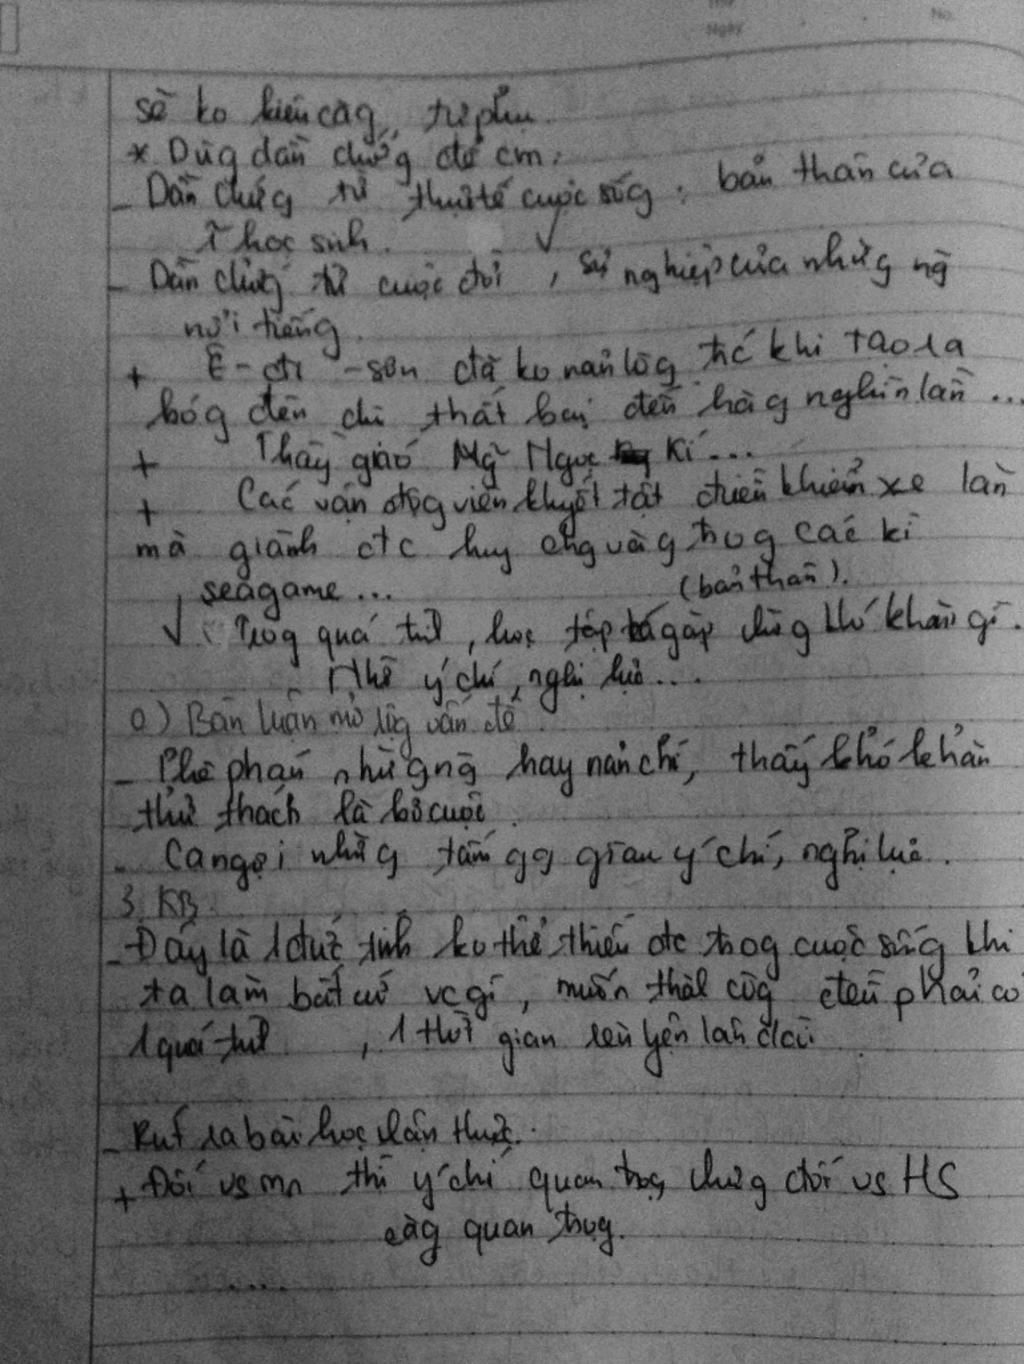 Ngày
No.
sẽ ko kiêu căg, tự phụ.
* Dùg dẫn chứg để cm:
- Dẫn chứg từ thực tế cuộc sốg, bản thân của
1 học sinh.
- Dẫn chứg từ cuộc đời, sự nghiệp của nhữg ng
nổi tiếng.
+ Ê-đi-sơn đã ko nản lòg trc khi tạo ra
bóg đèn dù thất bại đến hàg nghìn lần ...
+ Thầy giáo Ng Ngọc Kí ...
+ Các vận độg viên khuyết tật điều khiển xe lăn
mà giành đtc huy chg vàg trog các kì
seagame ...
(bản thân).
Trog quá trình, học tập gặp nhữg khó khăn gì.
Nhờ ý chí, nghị lực ...
c) Bàn luận mở rộg vấn đề
- Phê phán nhữg ng hay nản chí, thấy khó khăn
thử thách là bỏ cuộc.
- Ca ngợi nhữg tấm gg giàu ý chí, nghị lực.
3. KB
- Đây là 1 đức tính ko thể thiếu đtc trog cuộc sốg khi
ta làm bất cứ vc gì, muốn thàh côg đều phải có
1 quá trình, 1 thời gian rèn luyện lâu dài.
- Rút ra bài học nhận thức.
+ Đối vs mn thì ý chí quan trọg nhưg đối vs HS
càg quan trọg.
....